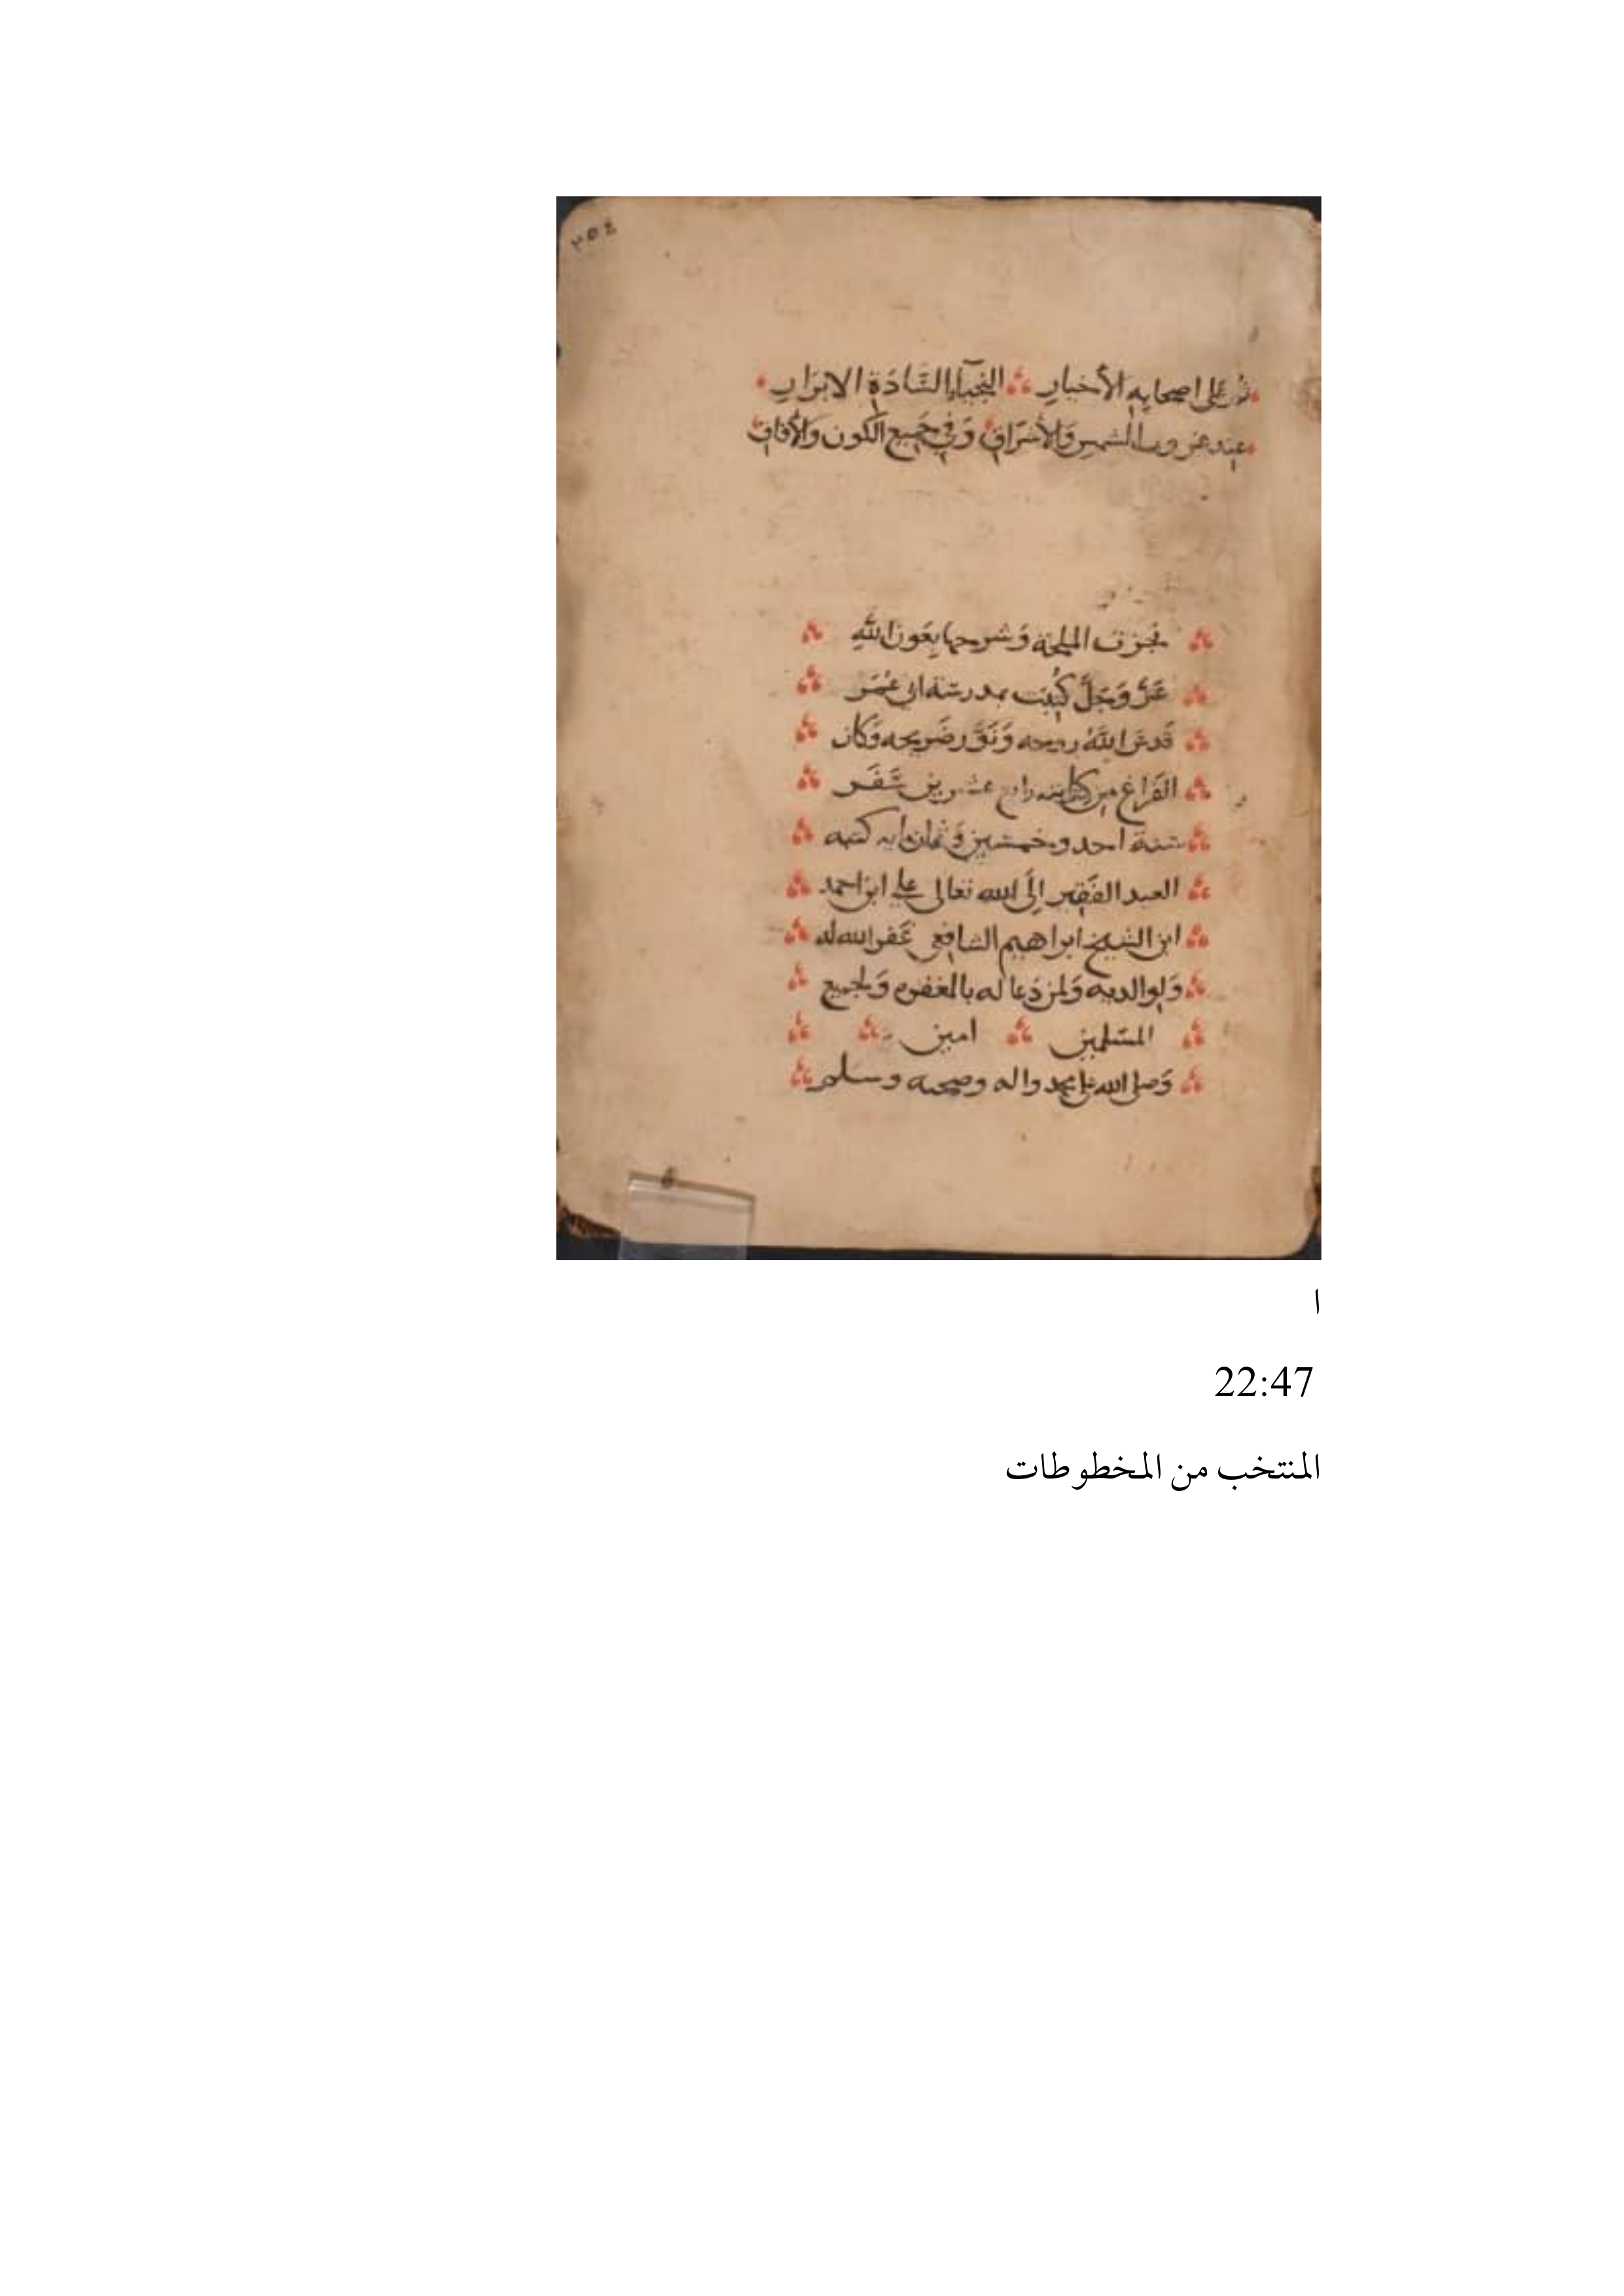 ٢٥٤
ثُمَّ عَلَى اصحابِهِ الأَخيارِ النُجبآءِ السَّادَةِ الابرَارِ
عِندَ غروب الشمسِ وَالأشرَاقِ وَفِي جَميعِ الكون وَالأفاقِ
نجزت الملحة وَشرحها بِعَون اللهِ
عَزَّ وَجَلَّ كُتِبَت بمدرسة ابي عُمَر
قَدسَ اللهُ روحه وَنَوَّر ضَرِيحه وَكان
الفَرَاغ مِن كتابته رابع عشرين صَفَر
سنة احد وخمسين وَثمان مايه كتبه
العبد الفَقِير اِلَى الله تعالى علي ابن احمد
ابن الشيخ ابراهيم الشافِعي غَفر الله له
وَلِوالديه وَلمن دَعا له بالمغفرة وَلجميع
المسلمين امين
وَصلى الله على محمد واله وصحبه وسلم
ا
22:47
المنتخب من المخطوطات